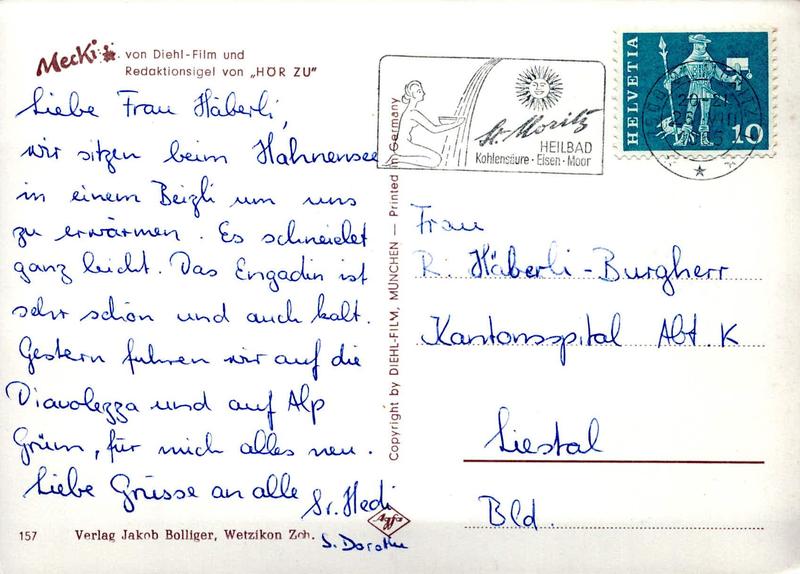 Mecki von Diehl-Film und
Redaktionsigel von „HÖR ZU"
Liebe Frau Häberli,
wir sitzen beim Hahnensee
in einem Beizli um uns
zu erwärmen. Es schneielet
ganz leicht. Das Engadin ist
sehr schön und auch kalt.
Gestern fuhren wir auf die
Diavolezza und auf Alp
Grüm, für mich alles neu.
Liebe Grüsse an alle Sr. Hedi
S. Dorothe
157 Verlag Jakob Bolliger, Wetzikon Zch.
Agfa
Copyright by DIEHL-FILM, MÜNCHEN — Printed in Germany
St. Moritz
HEILBAD
Kohlensäure · Eisen · Moor
HELVETIA
10
20-21
Frau
R. Häberli-Burgherr
Kantonsspital Abt. K
Liestal
Bld.